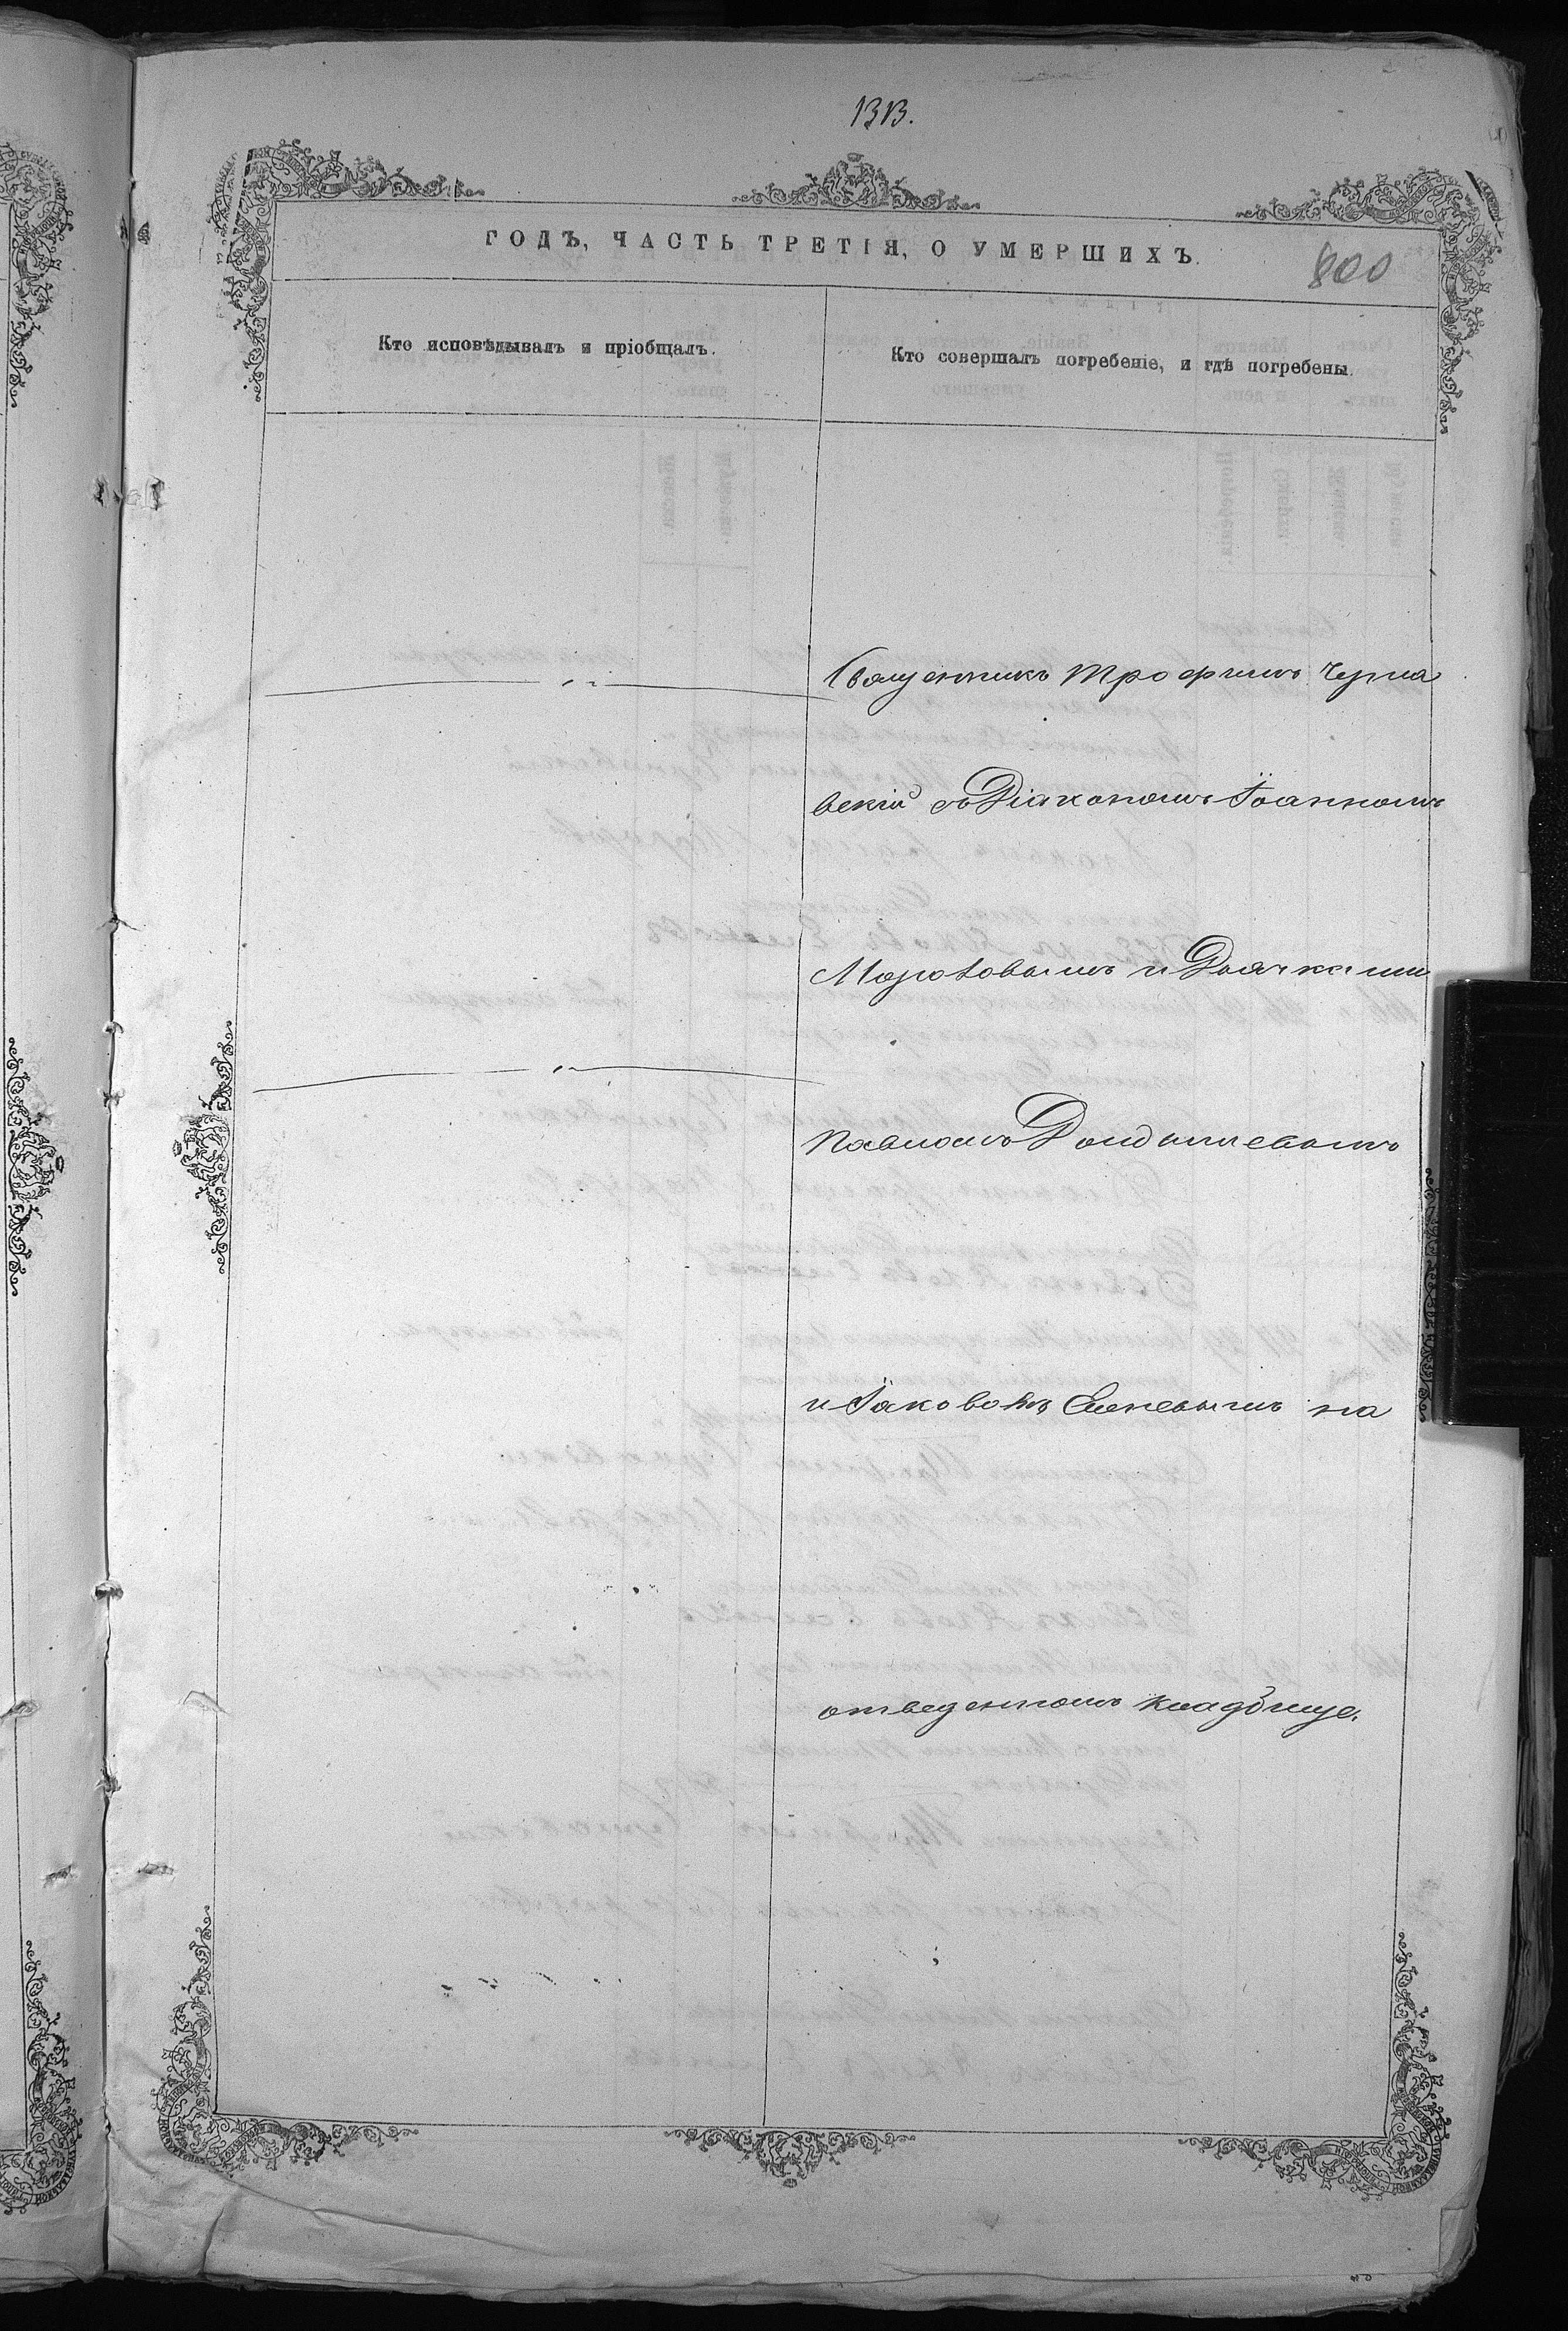 1313.
ГОДЪ, ЧАСТЬ ТРЕТІЯ, О УМЕРШИХЪ.
800
Кто исповѣдывалъ и пріобщалъ.
Кто совершалъ погребеніе, и гдѣ погребены.
Священникъ Трофимъ Черна
вскій съ Діакономъ Іоанномъ
Морозовымъ и Дьячками
Павломъ
и Іаковомъ на
отведенномъ кладбище.